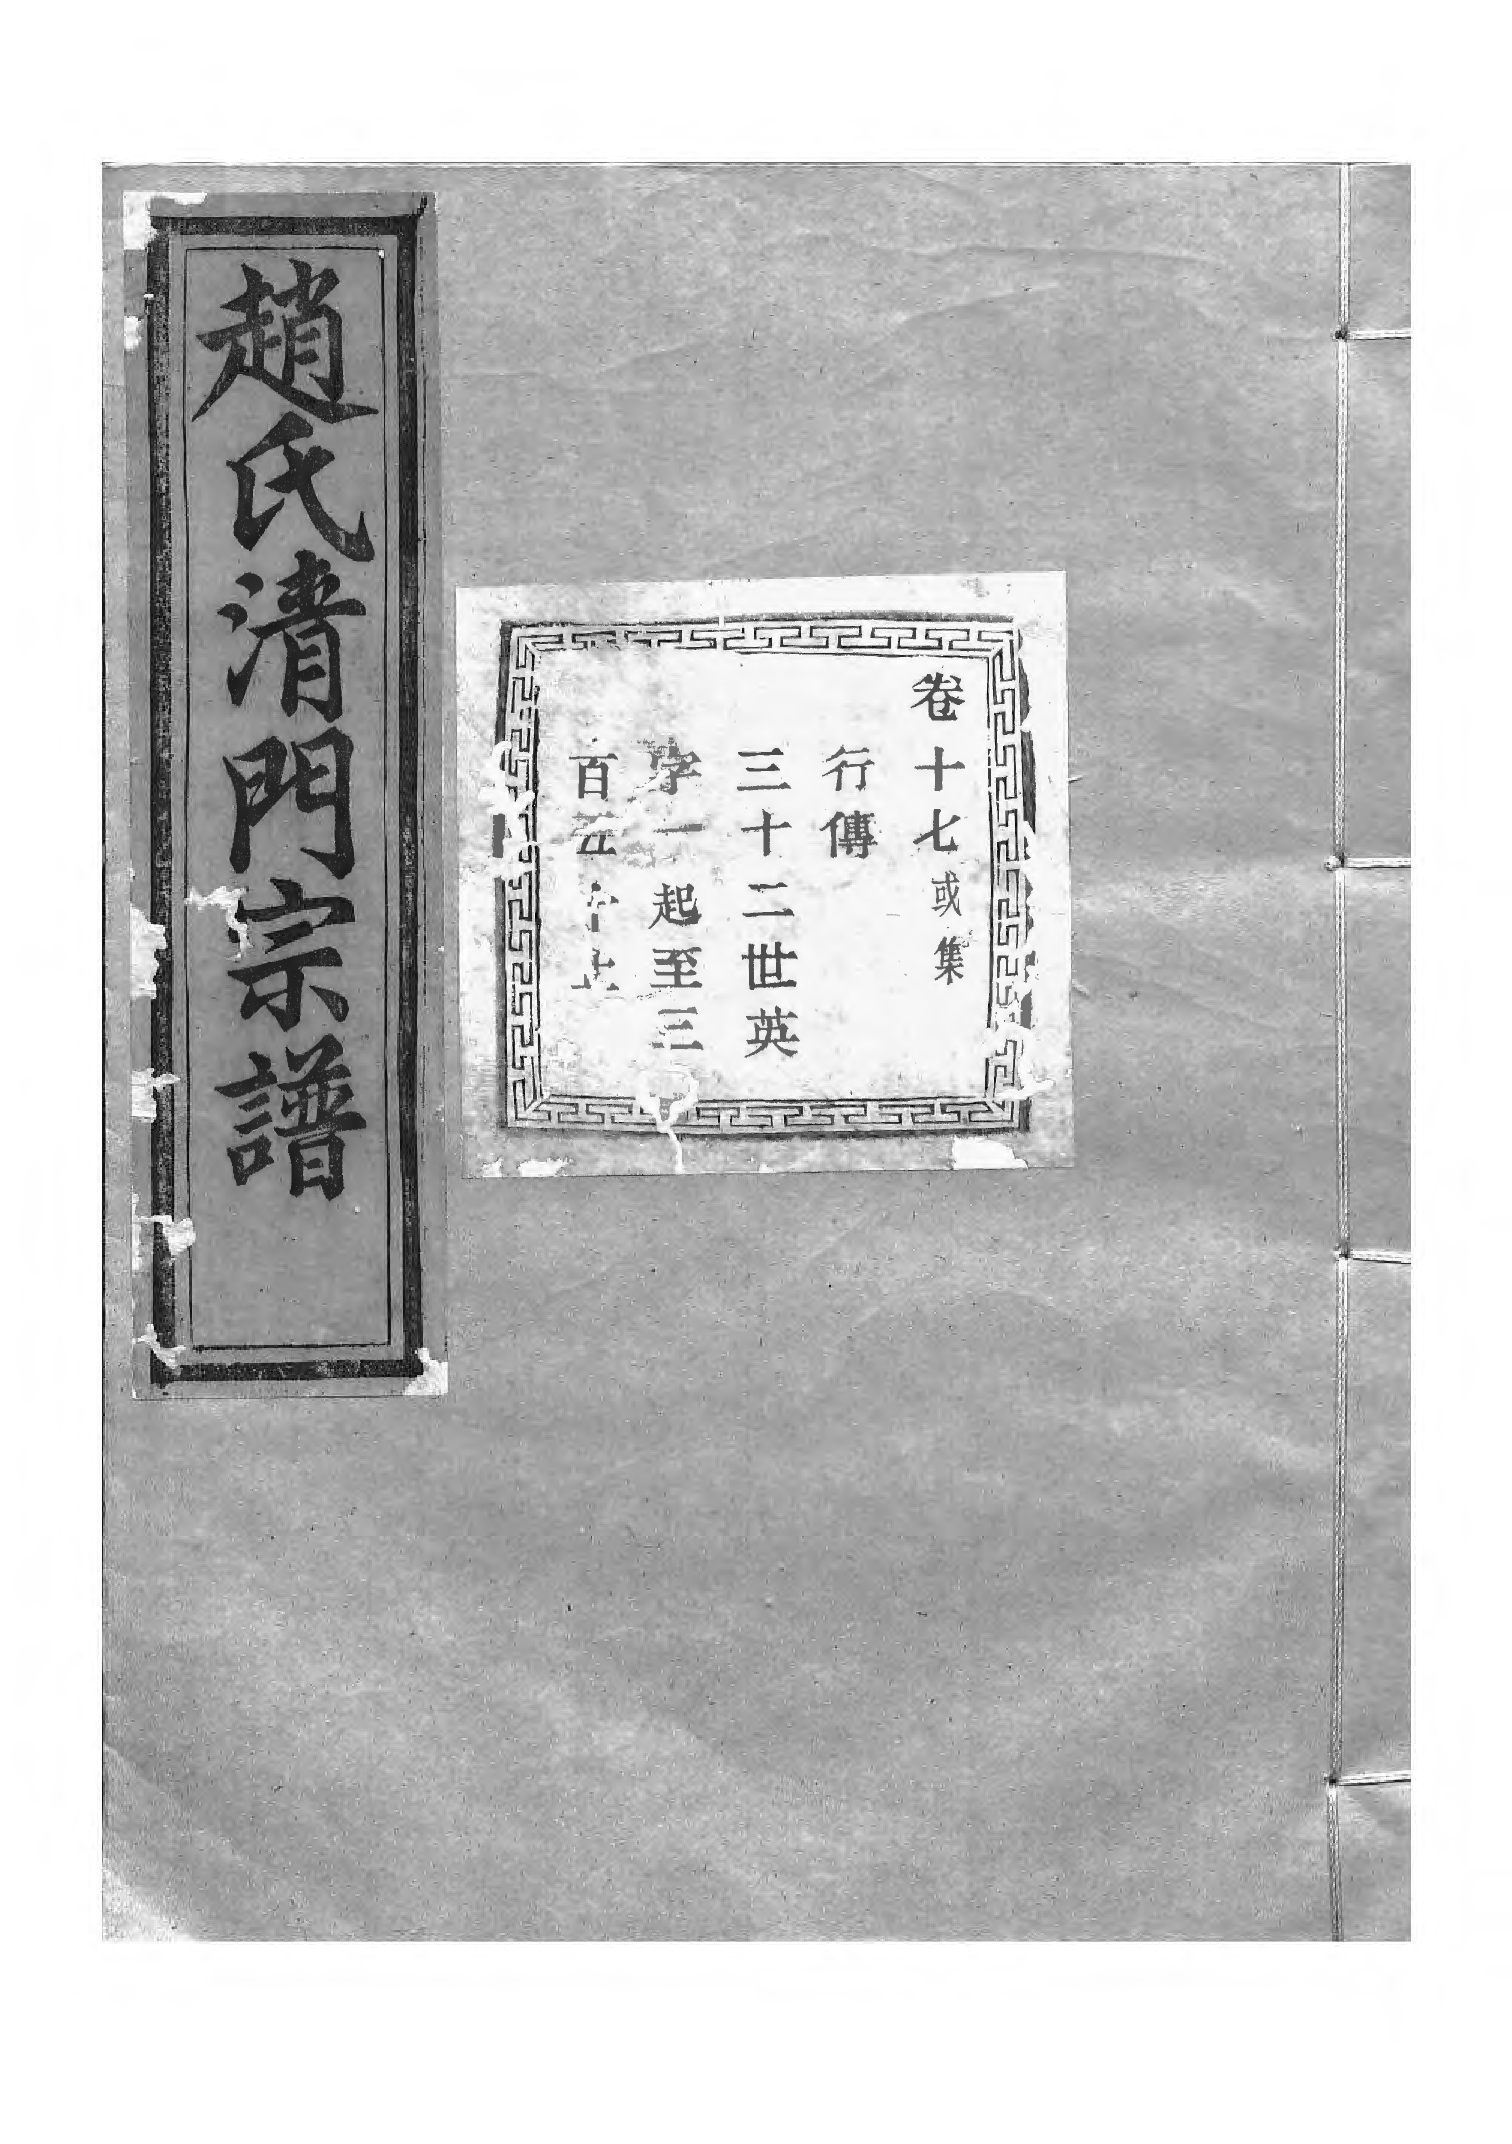 趙氏清門宗譜
卷十七或集
行傳
三十二世英
字一起至三
百五十止